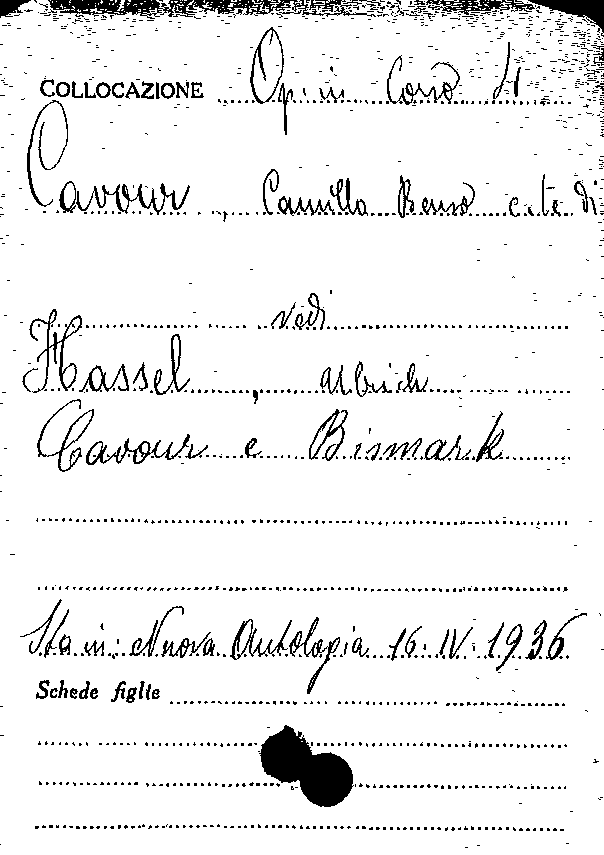 COLLOCAZIONE Op. in Corso 4
Cavour, Camillo Benso c.te di
vedi
Hassel, Ulrich
Cavour e Bismark
Sta in: Nuova Antologia 16.IV.1936
Schede figlie